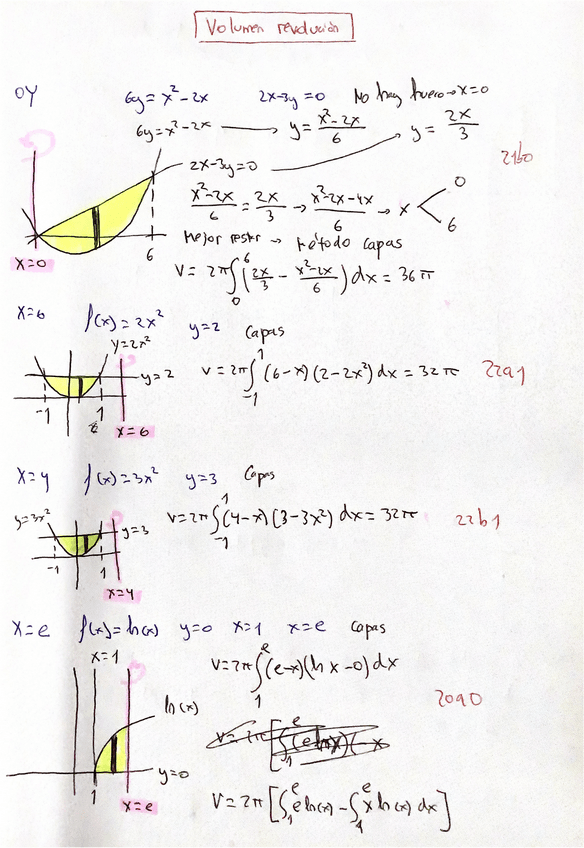 Volumen revolución
OY 6y = x² - 2x 2x - 3y = 0 No hay hueco → x = 0
6y = x² - 2x → y = (x² - 2x)/6 → y = 2x/3
2x - 3y = 0
21b0
(x² - 2x)/6 = 2x/3 → (x² - 2x - 4x)/6 → x < 0 6
Mejor restar → Método capas
x = 0 6
V = 2π ∫₀⁶ (2x/3 - (x² - 2x)/6) dx = 36π
x = 6 f(x) = 2x² y = 2 Capas
y = 2x²
y = 2
V = 2π ∫₋₁¹ (6-x)(2-2x²) dx = 32π 22a1
-1 1
x = 6
x = 4 f(x) = 3x² y = 3 Capas
y = 3x² y = 3
V = 2π ∫₋₁¹ (4-x)(3-3x²) dx = 32π 22b1
-1 1
x = 4
x = e f(x) = ln(x) y = 0 x = 1 x = e Capas
x = 1
V = 2π ∫₁ᵉ (e-x)(ln x - 0) dx
ln(x)
20a0
y = 0
1 x = e
V = 2π [∫₁ᵉ e ln(x) - ∫₁ᵉ x ln(x) dx]